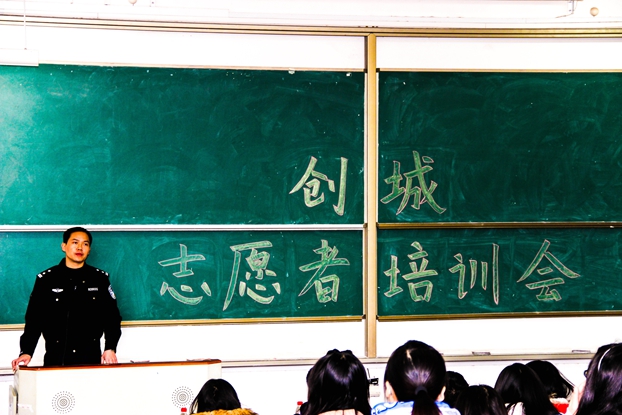 创城
志愿者培训会